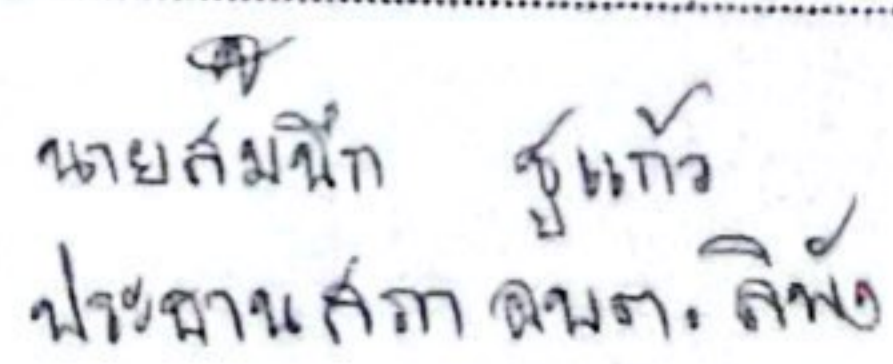 นายสมนึก ชูแก้ว
ประธานสภา อบต. ลิพัง